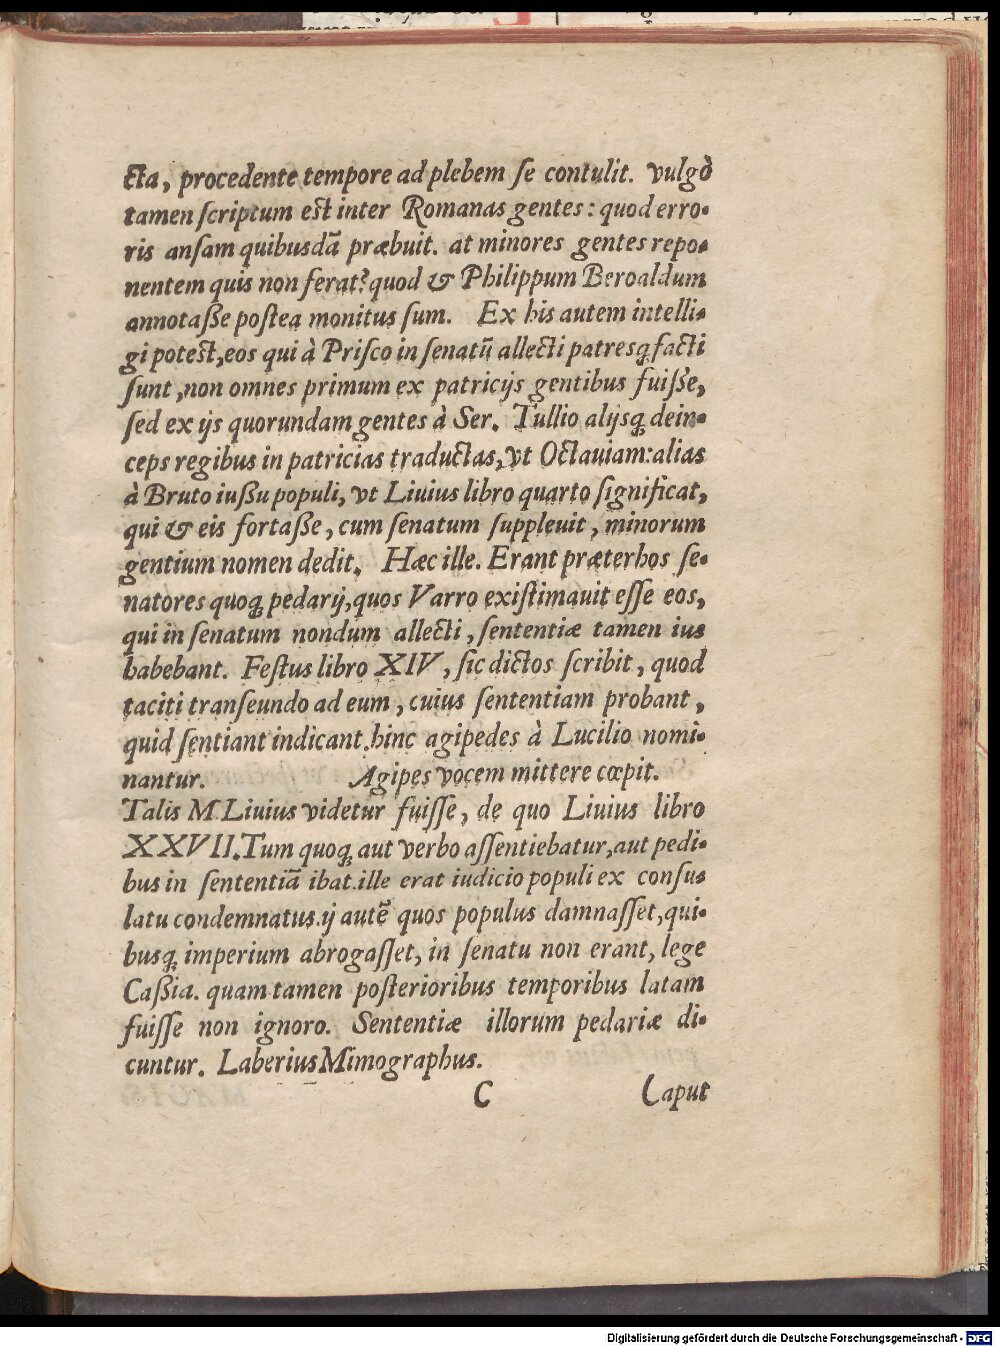 cta, procedente tempore ad plebem se contulit. vulgò
tamen scriptum est inter Romanas gentes: quod erro-
ris ansam quibusdã præbuit. at minores gentes repo-
nentem quis non ferat? quod & Philippum Beroaldum
annotaße postea monitus sum. Ex his autem intelli-
gi potest, eos qui à Prisco in senatũ allecti patresq́; facti
sunt, non omnes primum ex patricijs gentibus fuiße,
sed ex ijs quorundam gentes à Ser. Tullio alijsq́; dein-
ceps regibus in patricias traductas, vt Octauiam: alias
à Bruto iußu populi, vt Liuius libro quarto significat,
qui & eis fortaße, cum senatum suppleuit, minorum
gentium nomen dedit. Hæc ille. Erant præter hos se-
natores quoq́; pedarij, quos Varro existimauit esse eos,
qui in senatum nondum allecti, sententiæ tamen ius
habebant. Festus libro XIV, sic dictos scribit, quod
taciti transeundo ad eum, cuius sententiam probant,
quid sentiant indicant. hinc agipedes à Lucilio nomi-
nantur. Agipes vocem mittere cœpit.
Talis M. Liuius videtur fuisse, de quo Liuius libro
XXVII. Tum quoq́; aut verbo assentiebatur, aut pedi-
bus in sententiã ibat. ille erat iudicio populi ex consu-
latu condemnatus. ij autẽ quos populus damnasset, qui-
busq́; imperium abrogasset, in senatu non erant, lege
Caßia. quam tamen posterioribus temporibus latam
fuisse non ignoro. Sententiæ illorum pedariæ di-
cuntur. Laberius Mimographus.
C Caput
Digitalisierung gefördert durch die Deutsche Forschungsgemeinschaft - DFG